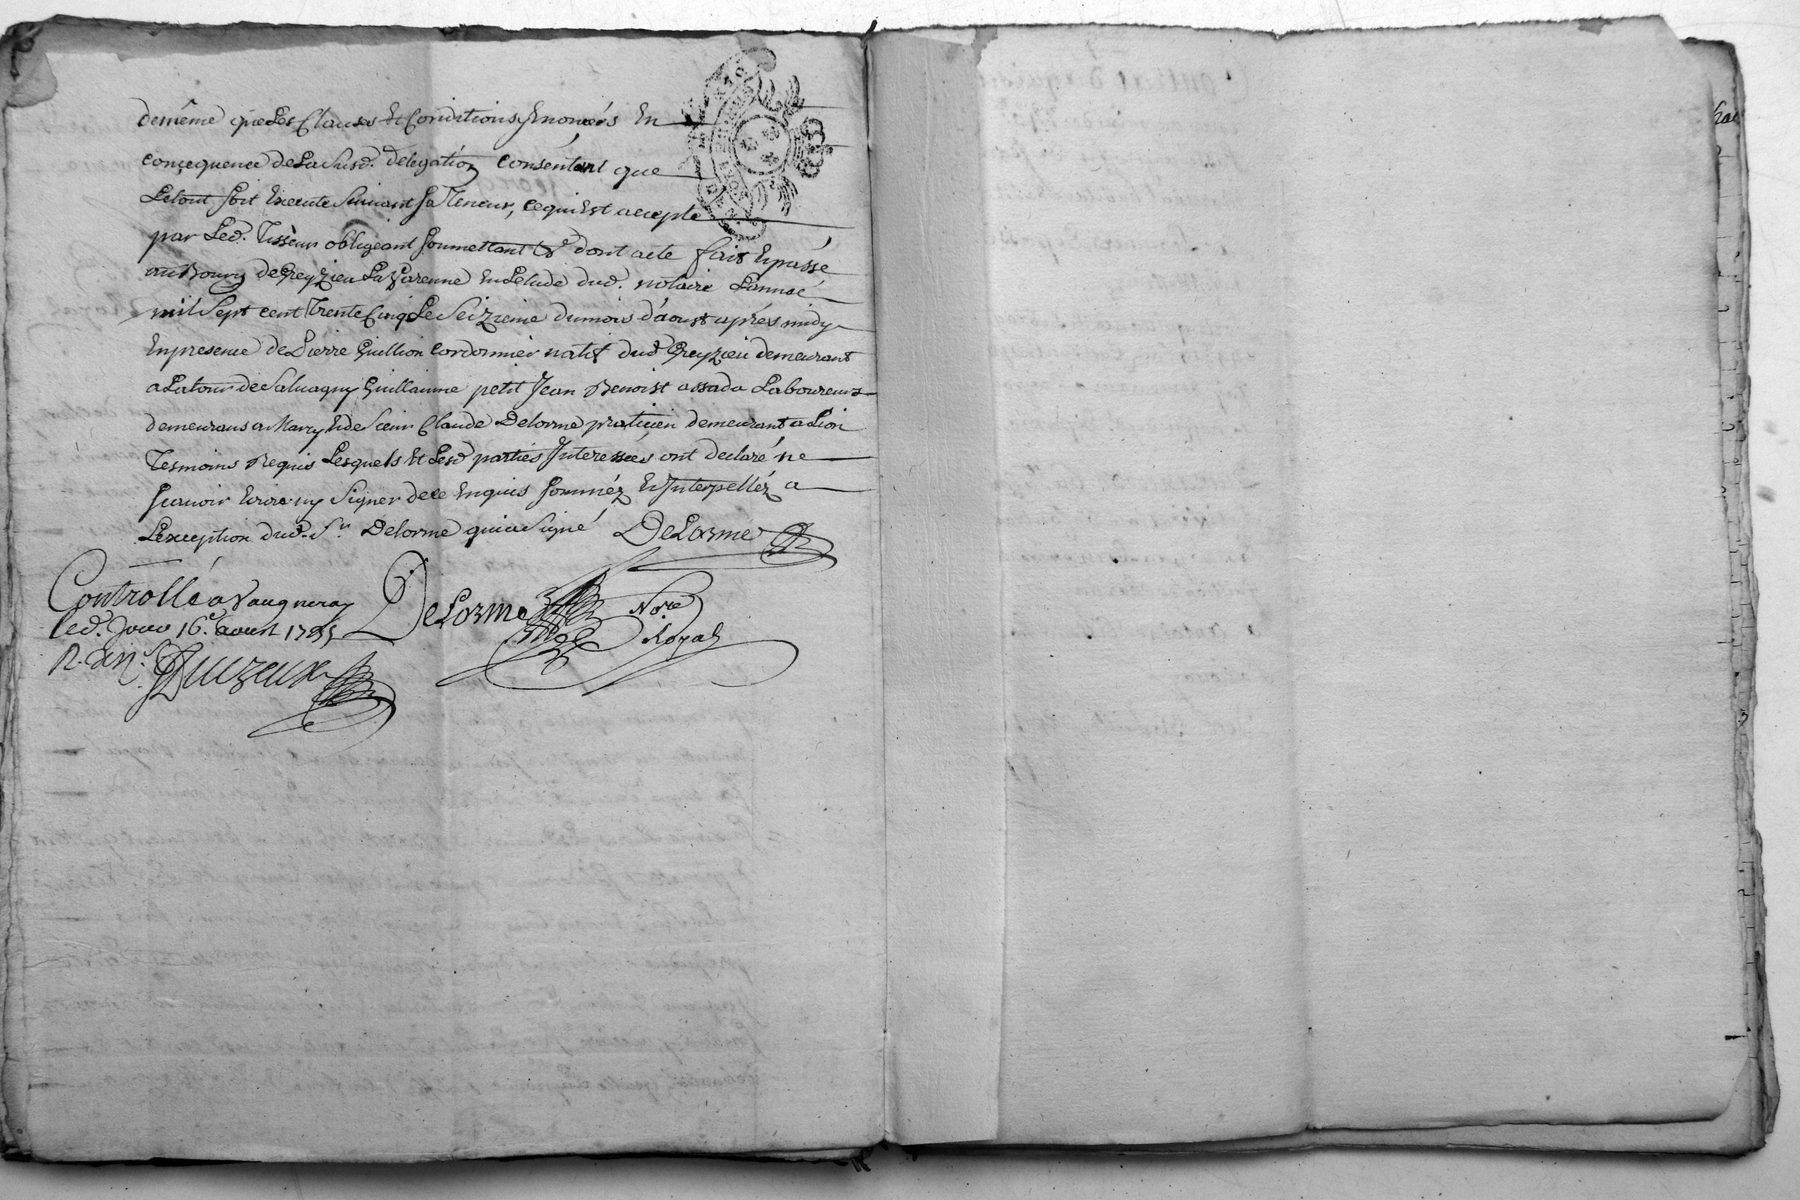 de même que Les Clauses Et Conditions Enoncés En
concequence de La susd. delegation consentant que
Letout soit Execute Suivant sa Teneur, cequi Est accepte
par Led. Tisseur obligeant soumettant &c dont acte fait Epassé
au Bourg de Greyzieu La Varenne En Letude dud. notaire Lannée
mil Sept cent Trente Cinq Le Seizieme du mois d'aoust après midy
En presence de Pierre Guillion cordonnier natif dud. Greyzieu demeurant
a Latour de Salvagny Guillaume petit Jean Benoist assada Laboureurs
demeurans a Marcy Et de Sieur Claude Delorme praticien demeurant a Lion
Tesmoins Requis Lesquels Et Lesd. parties Interessées ont declaré ne
scavoir Ecrire ny Signer de ce Enquis sommez Et Interpellez a
Lexception dud. Sr. Delorme qui a Signé DeLorme
Controllé a Vaugneray DeLorme Nore
led. Jour 16e. aoust 1735 Royal